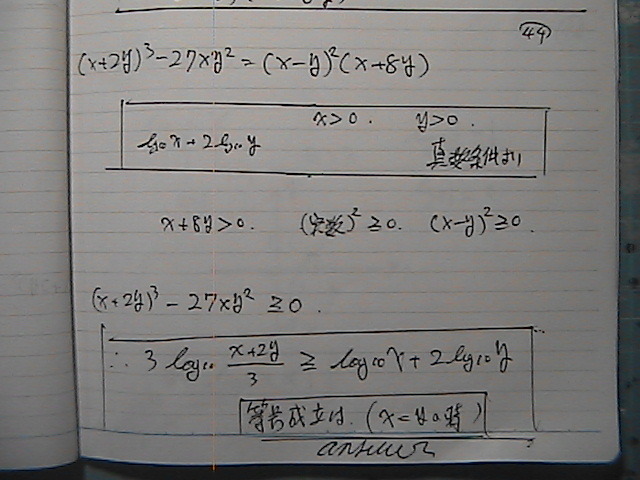 44
(x+2y)³-27xy²=(x-y)²(x+8y)
x>0. y>0.
log₁₀x+2log₁₀y 真数条件より
x+8y>0. (実数)²≧0. (x-y)²≧0.
(x+2y)³-27xy²≧0.
∴3log₁₀ (x+2y)/3 ≧ log₁₀x+2log₁₀y
等号成立は.(x=yの時)
answer